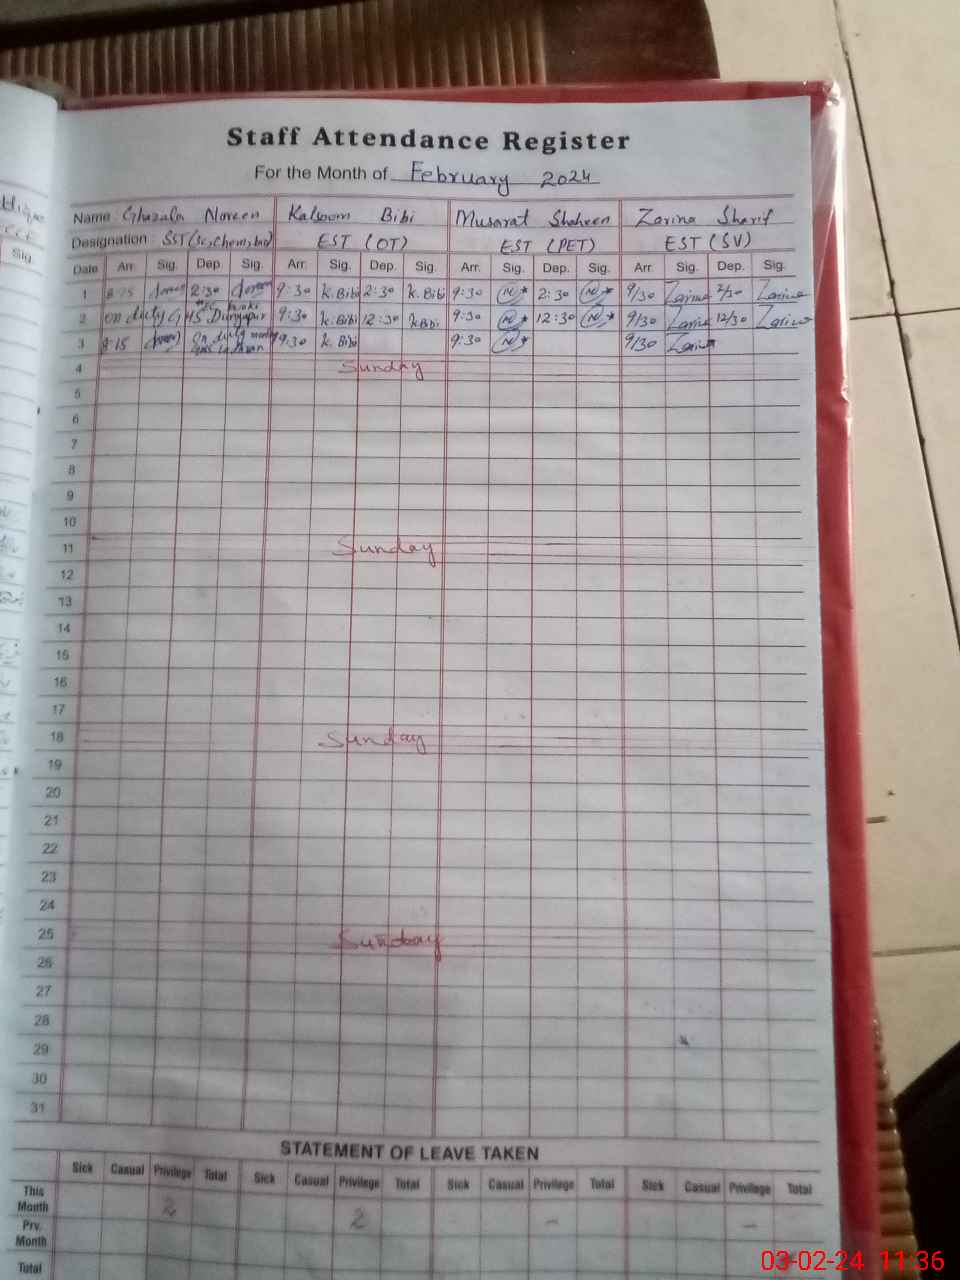 Staff Attendance Register
For the Month of February 2024
Name Ghazala Noreen Kalsoom Bibi Musarat Shaheen Zarina Sharif
Designation SST(Sc,Chem,bio) EST (OT) EST (PET) EST (SV)
Sig.
Date Arr. Sig. Dep. Sig. Arr. Sig. Dep. Sig. Arr. Sig. Dep. Sig. Arr. Sig. Dep. Sig.
1 8:15 2:30 9:30 K.Bibi 2:30 K.Bibi 9:30 2:30 9/30 Zarina 2/30 Zarina
2 on duty GHS Dunyapur 9:30 K.Bibi 12:30 K.Bibi 9:30 12:30 9/30 Zarina 12/30 Zarina
3 8:15 On duty 9:30 K.Bibi 9:30 9/30 Zarina
4 Sunday
5
6
7
8
9
10
11 Sunday
12
13
14
15
16
17
18 Sunday
19
20
21
22
23
24
25 Sunday
26
27
28
29
30
31
STATEMENT OF LEAVE TAKEN
Sick Casual Privilege Total Sick Casual Privilege Total Sick Casual Privilege Total Sick Casual Privilege Total
This Month 2 2 - -
Prv. Month
Total
03-02-24 11:36